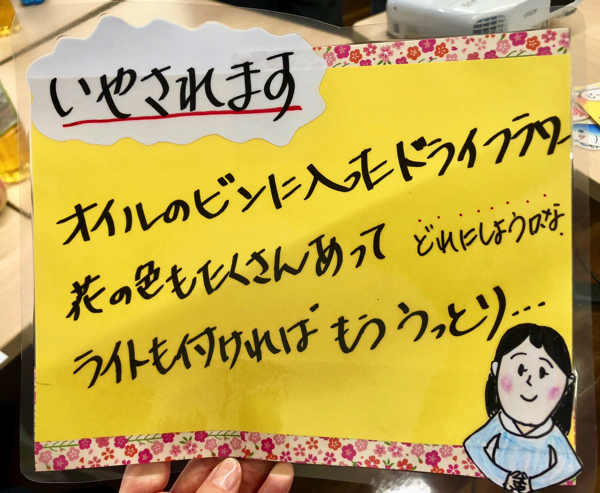 いやされます
オイルのビンに入ったドライフラワー
花の色もたくさんあって どれにしようかな
ライトも付ければ もううっとり…